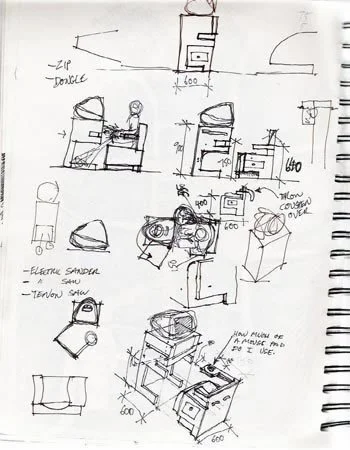 - ZIP
- DONGLE
600
640
400
600
TENON
COUNTER
OVER
- ELECTRIC SANDER
- " SAW
- TENON SAW
HOW MUCH OF
A MOUSE PAD
DO I USE.
600
600